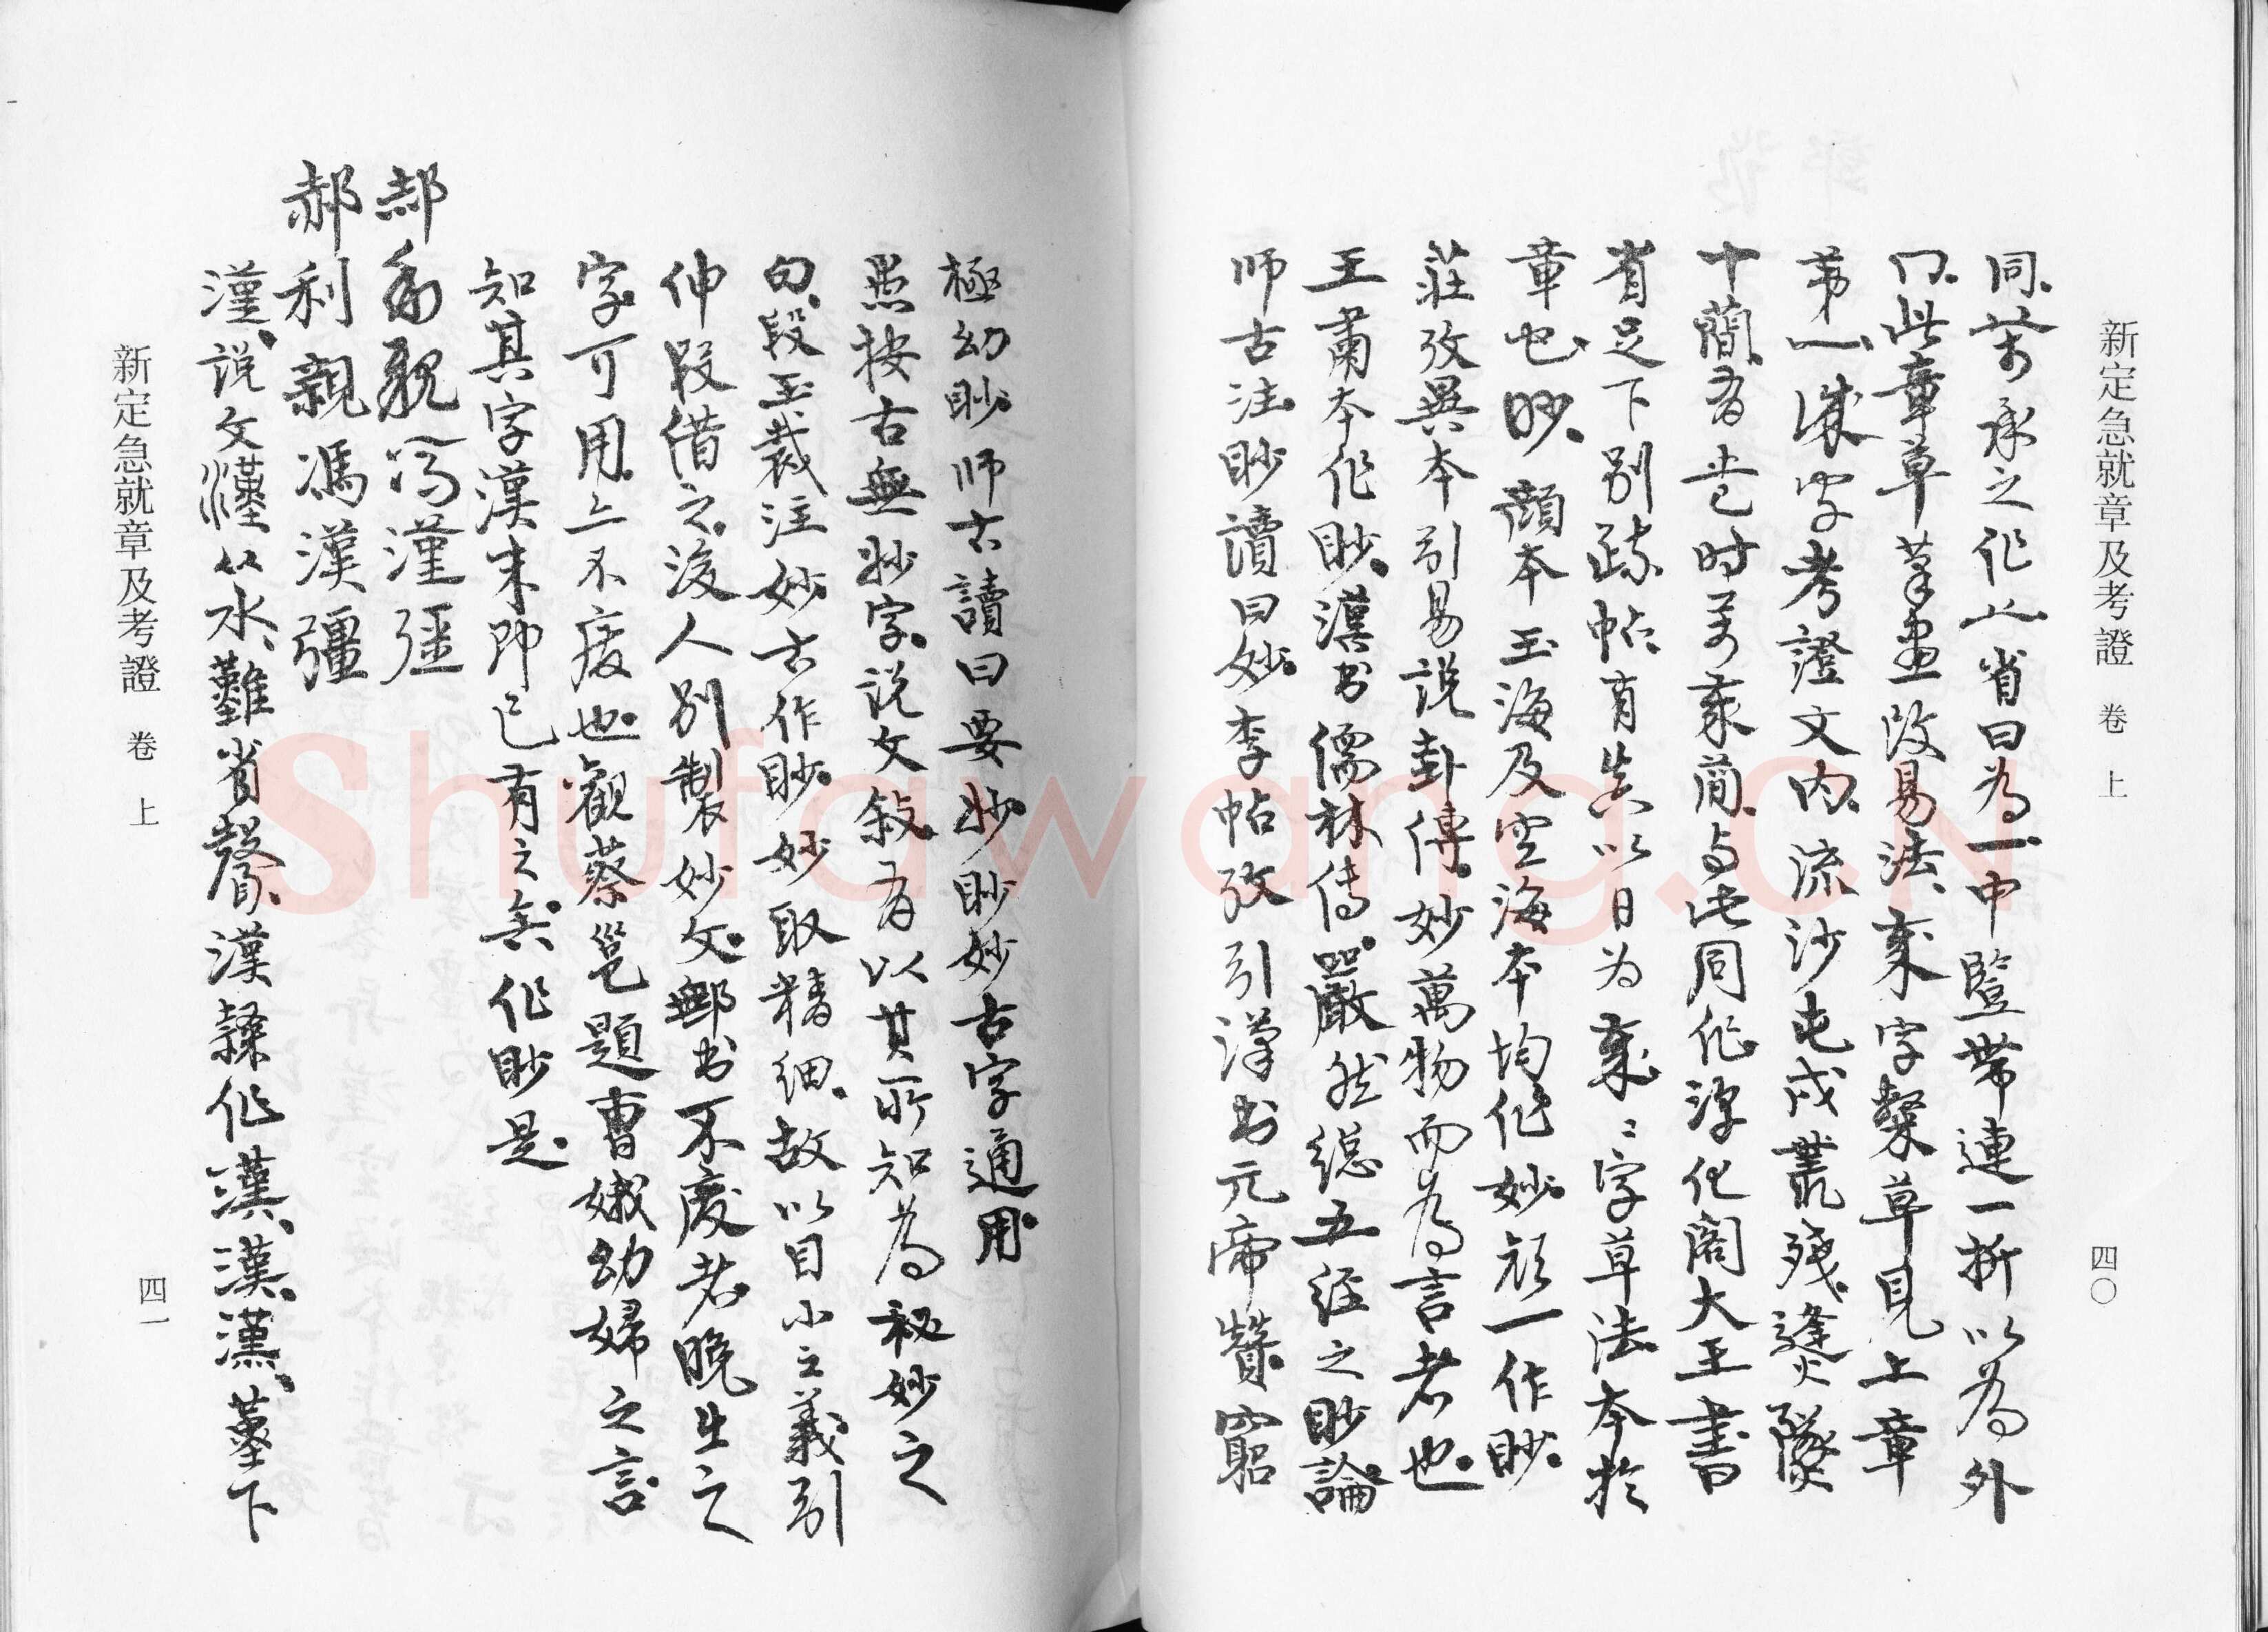 新定急就章及考證 卷上
四〇
同.其承之作业省曰為一.中豎帶連一折以為外
冂.此章草筆畫改易法.桒字粲草見上章
苐一.渁字考證文內.流沙屯戍叢殘.遳火隊
十蕳.有時桒蕳.与此同作.淳化閣大王書
省足下别疏帖.有共以日為桒=字草法.本於
章也.眇.顏本玉海及空海本均作妙.顏一作眇.
莊攷異本引易說卦傳.妙萬物而為言者也.
王肅本作眇.漢书儒林传.嚴然總五经之眇論.
师古注.眇讀曰妙.李帖攷引漢书元帝贊.窮
極幼眇.师古讀曰要妙.眇妙古字通用.
愚按古無妙字.说文敍有以其所知為祕妙之
句.段玉裁注.妙古作眇.妙取精细.故以目小之義引
伸叚借之.後人别製妙文.鄦书不廢者.晚生之
字可用.上不廢也.觀蔡邕題曹娥幼婦之言.
知其字漢末即已有之矣.作眇是.
郝利親馮漢彊
郝利親馮漢彊
漢.说文漢.从水.難省聲.漢隸作漢.漢.漢.堇下
新定急就章及考證 卷上
四一
Shufawang.CN